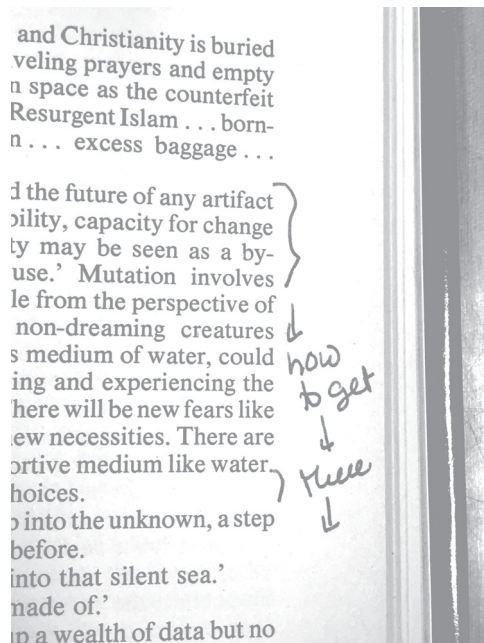 and Christianity is buried
veling prayers and empty
n space as the counterfeit
Resurgent Islam . . . born-
n . . . excess baggage . . .
d the future of any artifact
bility, capacity for change
ty may be seen as a by-
use.' Mutation involves
le from the perspective of
non-dreaming creatures
s medium of water, could
ing and experiencing the
here will be new fears like
ew necessities. There are
ortive medium like water.
hoices.
o into the unknown, a step
before.
into that silent sea.'
made of.'
up a wealth of data but no
how
to get
there